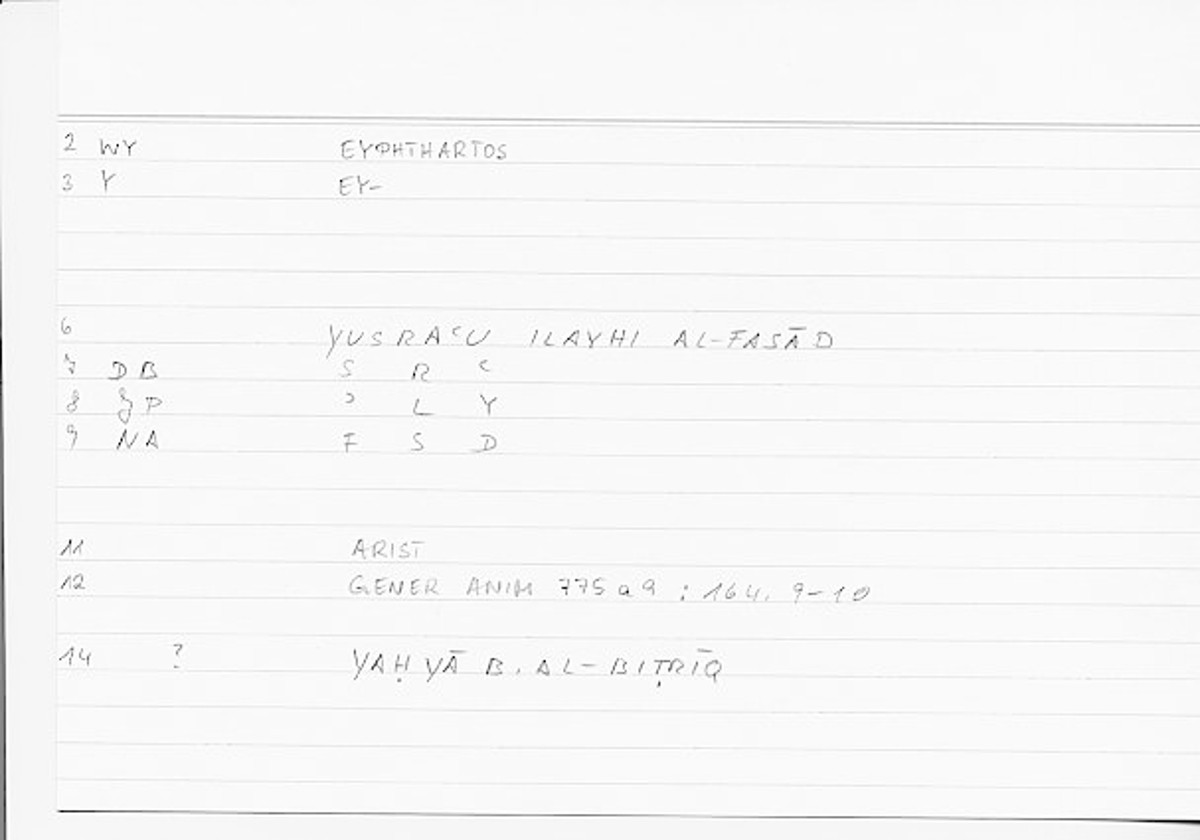 2 WY EYPHTHARTOS
3 Y EY-
6 YUSRAʿU ILAYHI AL-FASĀD
7 DB S R ʿ
8 JP ʾ L Y
9 NA F S D
11 ARIST
12 GENER ANIM 775 a 9 : 164, 9-10
14 ? YAḤYĀ B. AL-BIṬRĪQ